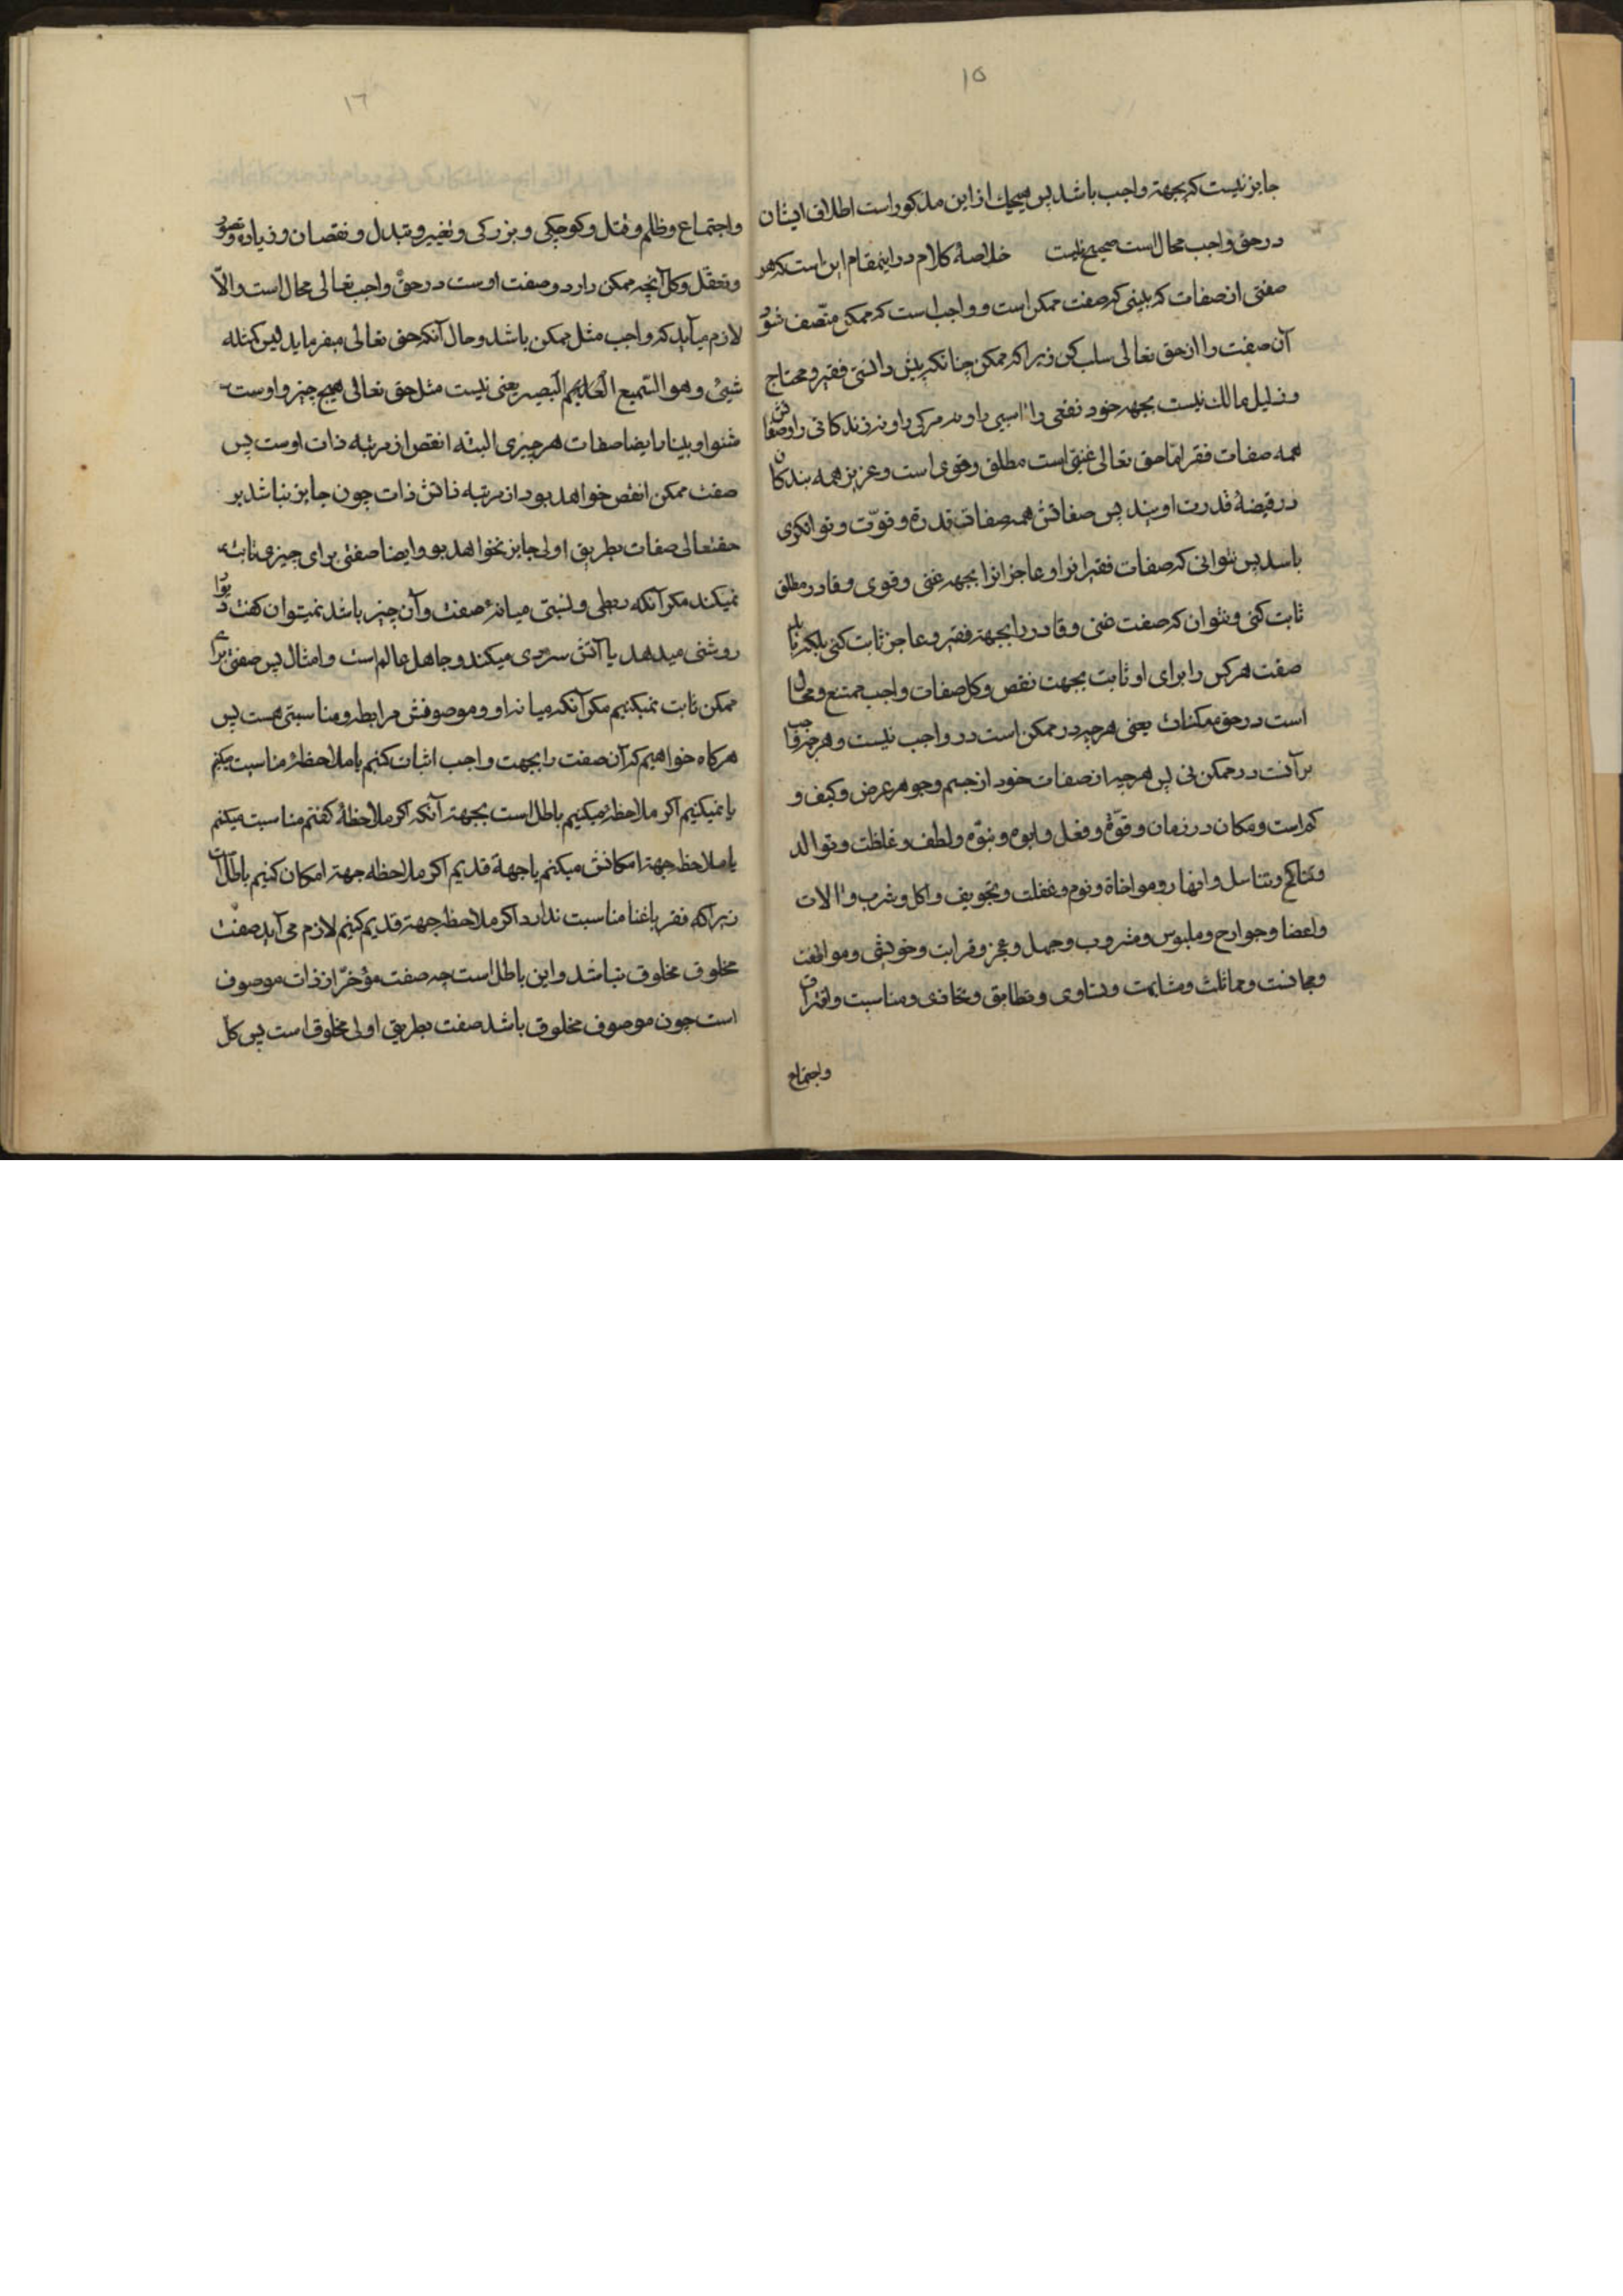 ۱۵
جایز نیست که بجهة واجب باشد پس هیچیك از این مذکور است اطلاق ایشان
در حق واجب محال است صحیح نیست خلاصهٔ کلام در اینمقام این است که هر
صفتی از صفات که بینی که صفت ممکن است و واجب است که ممکن متّصف شود
آن صفت را از حق تعالی سلب کن زیرا که ممکن چنانکه پیش دانستی فقیر و محتاج
و ذلیل مالك نیست بجهة خود نفعی را اسیی را و نه مرکی را و نه زندکانی را و صفاتش
همه صفات فقر امّا حق تعالی غنیّ است مطلق و قوی است و عزیز همه بندکان
در قبضهٔ قدرت اویند پس صفاتش همه صفات قدرة و قوّت و توانکری
باسد پس نتوانی که صفات فقیرانرا و عاجزانرا بجهة غنی و قوی و قادر مطلق
ثابت کنی و نتوان که صفت غنی و قادر را بجهة فقیر و عاجز ثابت کنی بلکه باید
صفت هرکس را برای او ثابت بجهت نقص و کل صفات واجب ممتنع و محال
است در حق ممکنات یعنی هرچه در ممکن است در واجب نیست و هرچه واجب
بر آنست در ممکن نی پس هرچه از صفات خود از جسم و جوهر عرض و کیف و
کم است و مکان در زمان و قوّة و فعل و ابوه و بنوّه و لطف و غلظت و توالد
و تناکح و تناسل و انهار و مواخاة و نوم و غفلت و تجویف و اکل و شرب و الات
و اعضا و جوارح و ملبوس و مشروب و جهل و عجز و قرابت و خویشی و موافقت
و مجانست و مماثلث و مشابهت و تساوی و تطابق و تحاذی و مناسبت و اقتران
واجتماع
۱٦
واجتماع و ظلم و قتل و کوچکی و بزرکی و تغییر و تبدل و نقصان و زیاده و تصور
و تعقّل و کل آنچه ممکن دارد و صفت اوست در حق واجب تعالی محال است والّا
لازم میآید که واجب مثل ممکن باشد و حال آنکه حق تعالی میفرماید لیس کمثله
شیئ و هو السّمیع العلیم البصیر یعنی نیست مثل حق تعالی هیچ چیز و اوست
شنوا و بینا و ایضا صفات هر چیزی البته انقص از مرتبه ذات اوست پس
صفت ممکن انقص خواهد بود از مرتبه ذاتش ذات چون جایز نباشد بر
حقتعالی صفات بطریق اولی جایز نخواهد بود و ایضا صفتی برای چیزی ثابت
نمیکند مکر آنکه ربطی و نسبتی میانهٔ صفت و آن چیز باشد نمیتوان کفت دیوار
روشنی میدهد یا آتش سردی میکند و جاهل عالم است و امثال پس صفتی برای
ممکن ثابت نمیکنیم مکر آنکه میانه او و موصوفش مرابطه و مناسبتی هست پس
هرکاه خواهیم که آن صفت را بجهت واجب اثبات کنیم یا ملاحظهٔ مناسبت میکنیم
یا نمیکنیم اکر ملاحظه نمیکنیم باطل است بجهة آنکه اکر ملاحظهٔ کفتم مناسبت میکنم
یا ملاحظه جهة امکانش میکنم یا جهة قدیم اکر ملاحظه جهة امکان کنیم باطل است
زیرا که فقر با غنا مناسبت ندارد اکر ملاحظه جهة قدیم کنیم لازم می آید صفت
مخلوق مخلوق نباشد و این باطل است چه صفت مؤخّر از ذات موصوف
است چون موصوف مخلوق باشد صفت بطریق اولی مخلوق است پس کل